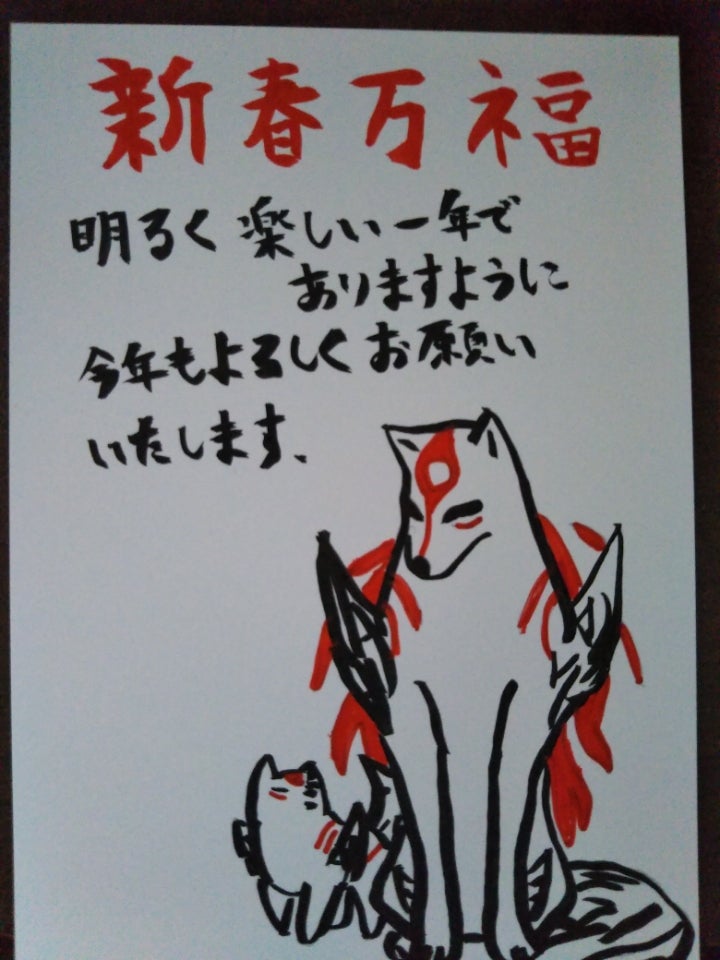 新春万福
明るく楽しい一年で
ありますように
今年もよろしくお願い
いたします、